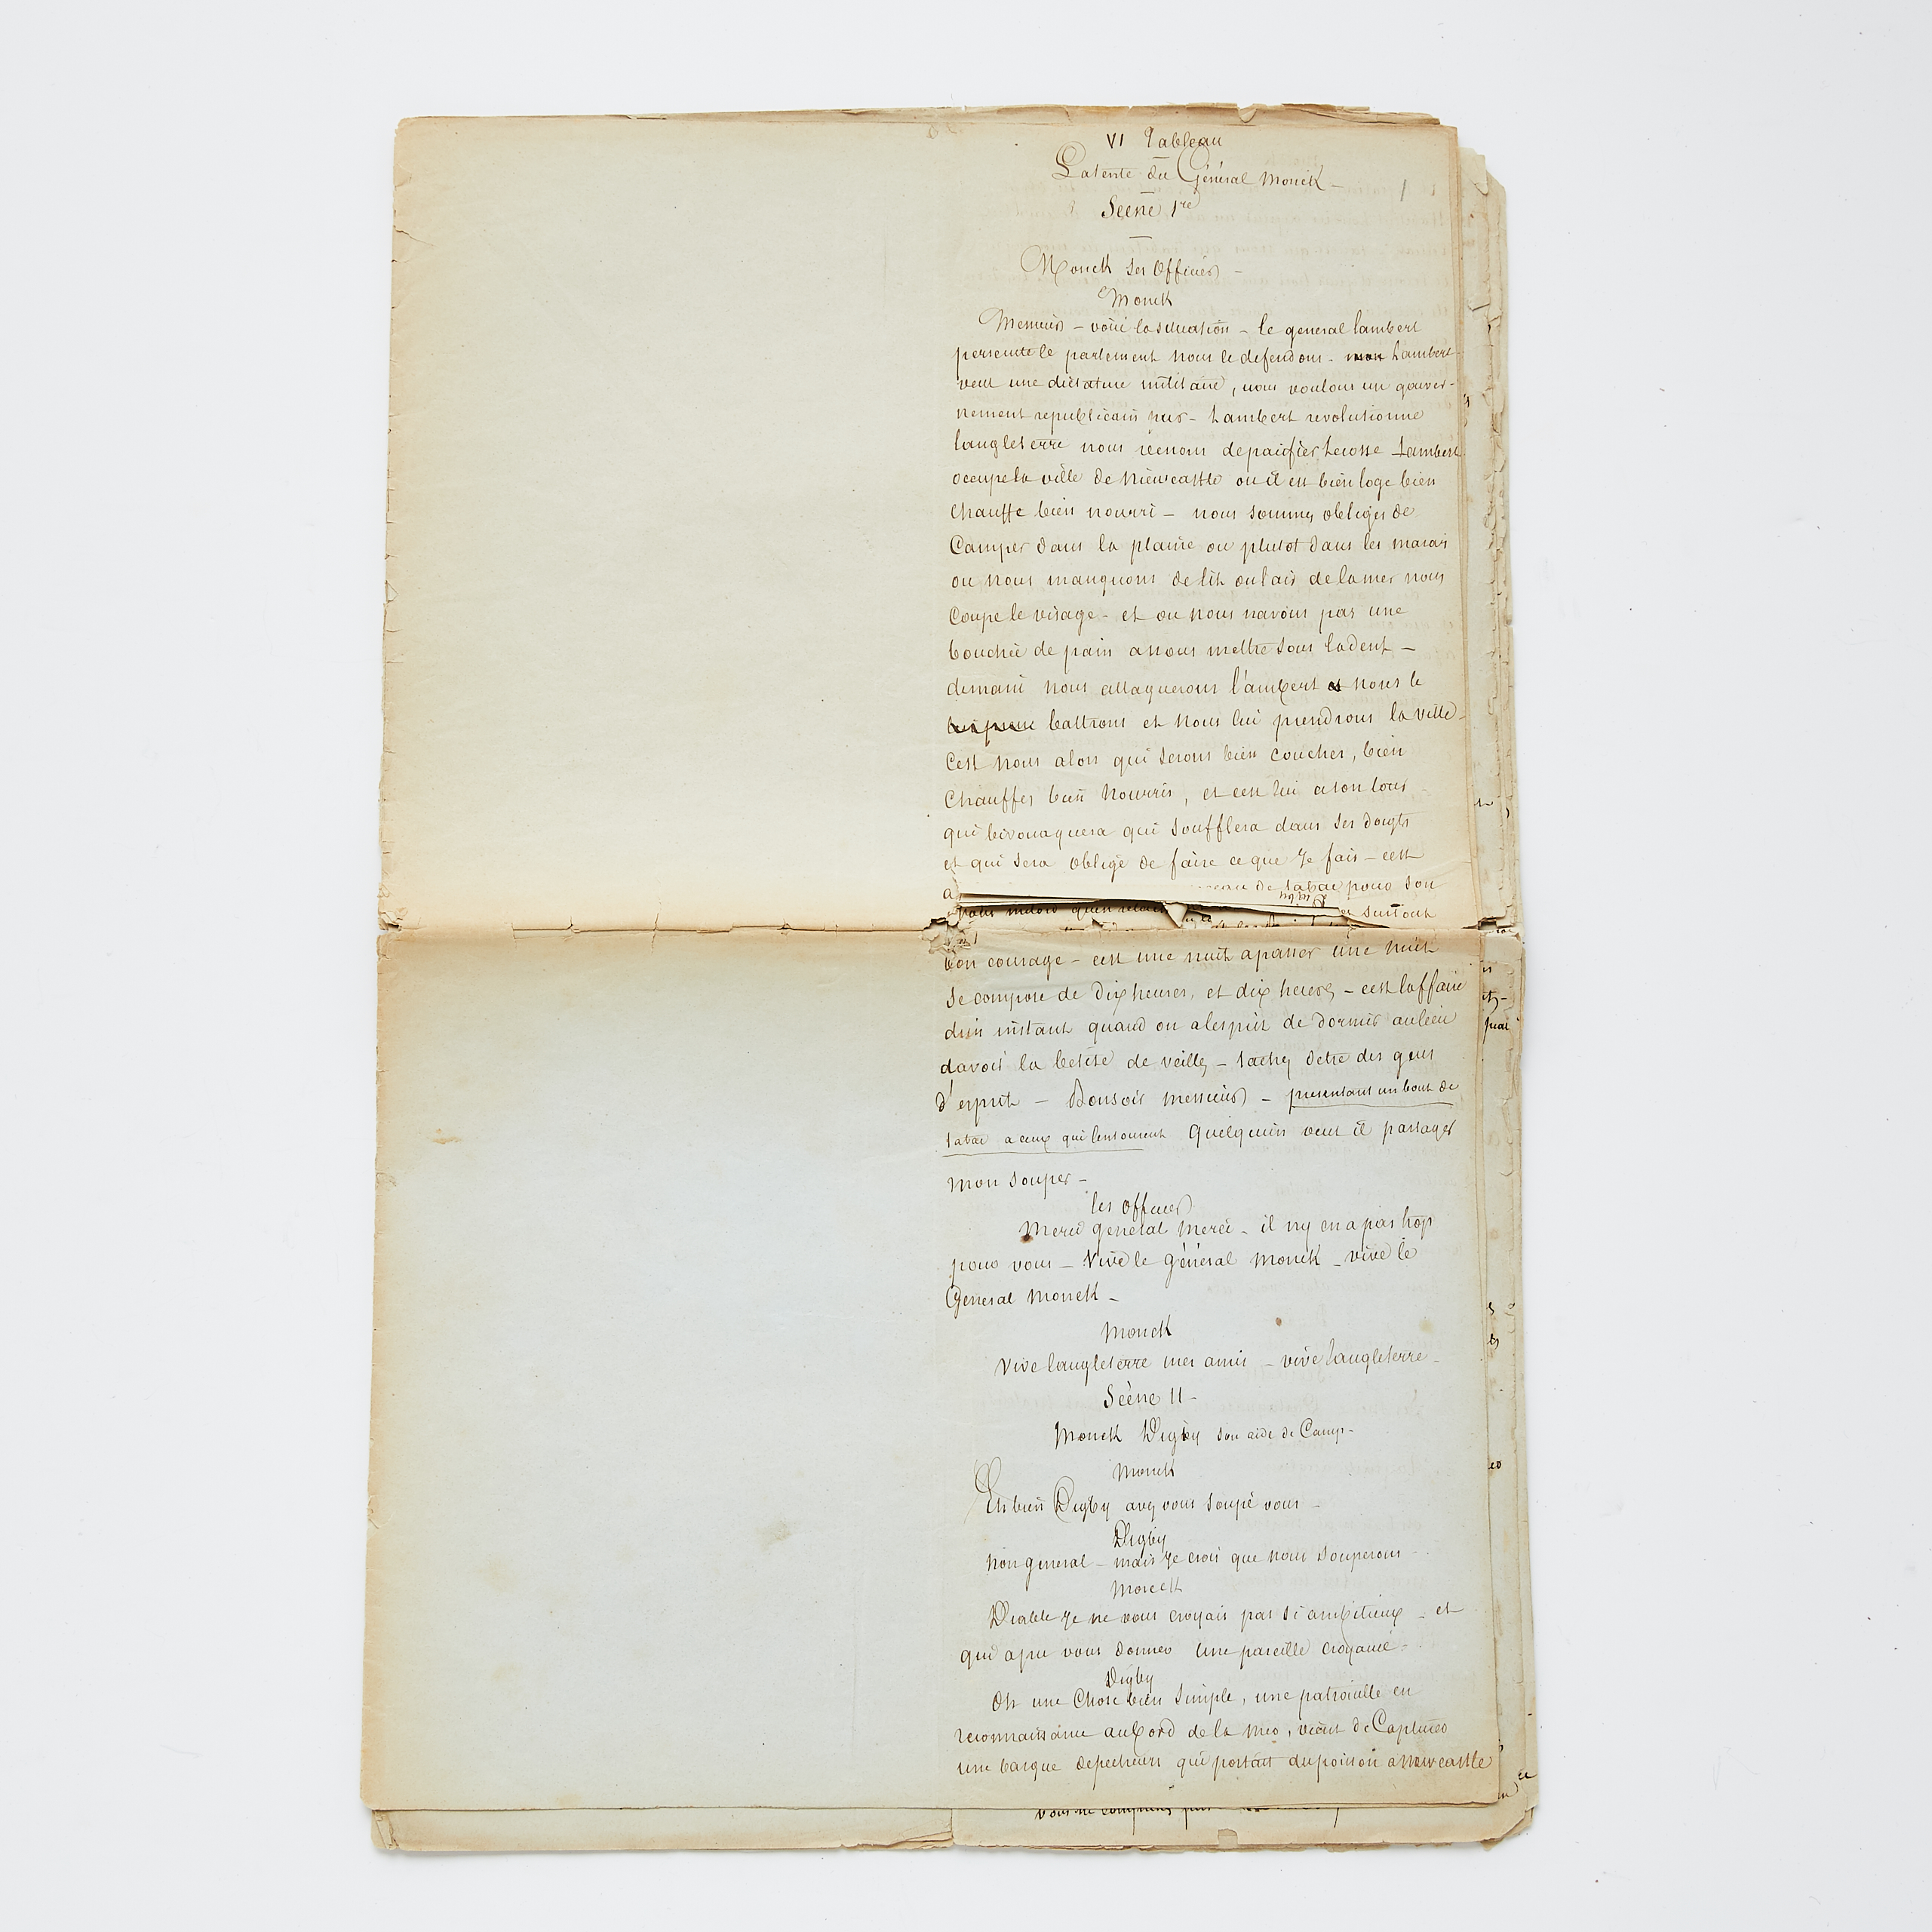 VI Tableau
La tente du Général Monck –
Scene 1re
Monck ses Officiers –
Monck
Messieurs – voici la situation – le general lambert
persecute le parlement nous le defendons – Lambert
veut une dictature militaire, nous voulons un gouver-
nement republicain pur – Lambert revolutionne
langleterre nous venons de pacifier Lecosse Lambert
occupe la ville de Niewcastle ou il est bien loge bien
Chauffe bien nourri – nous sommes obliges de
Camper dans la plaine ou plutot dans les marais
ou nous manquons de lits ou lair de la mer nous
Coupe le visage – et ou nous navons pas une
bouchée de pain a nous mettre sous la dent –
demain nous attaquerons l'ambert et nous le
battrons et nous lui prendrons la ville –
Cest nous alors qui serons bien coucher, bien
Chauffes bien Nourris, et cest lui a son tour
qui bivouaquera qui soufflera dans ses doigts
et qui sera obligé de faire ce que Je fais – cest
a de tabac pour son
surtout
bon courage – cest une nuit a passer une nuit
se compose de dix heures, et dix heures – cest laffaire
dun instant quand on a lesprit de dormir au lieu
davoir la betise de veiller – tachez detre des gens
d'esprit – Bonsoir messieurs – presentant un bout de
tabac a ceux qui lentourent Quelquun veut il partager
mon souper –
les officiers
Merci general merci – il ny en a pas trop
pour vous – Vive le général Monck – vive le
General Monck –
Monck
Vive langleterre mes amis – vive langleterre –
Scène II –
Monck Digby son aide de Camp –
Monck
Eh bien Digby avez vous soupé vous –
Digby
Non general – mais Je crois que nous souperons –
Monck
Diable Je ne vous croyais pas si ambitieux – et
qui a pu vous donner une pareille croyance –
Digby
Oh une Chose bien simple, une patrouille en
reconnaissance au bord de la mer, vient de Capturer
une barque de pecheurs qui portait du poisson a Newcastle
vous ne comprenez pas